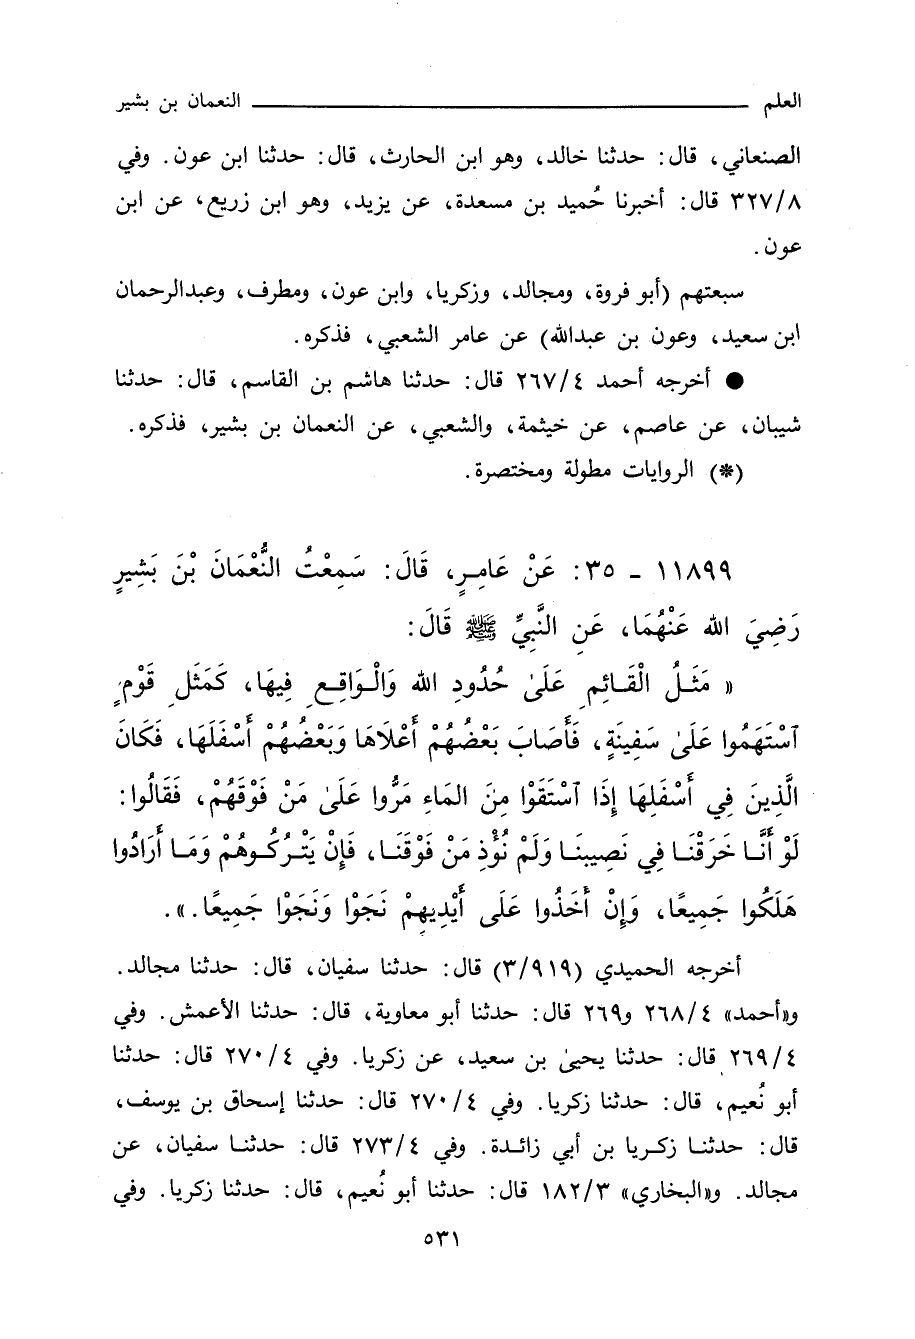 العلم ــــــــــــــــ النعمان بن بشير
الصنعاني، قال: حدثنا خالد، وهو ابن الحارث، قال: حدثنا ابن عون. وفي
٣٢٧/٨ قال: أخبرنا حُميد بن مسعدة، عن يزيد، وهو ابن زريع، عن ابن
عون.
سبعتهم (أبو فروة، ومجالد، وزكريا، وابن عون، ومطرف، وعبدالرحمان
ابن سعيد، وعون بن عبدالله) عن عامر الشعبي، فذكره.
● أخرجه أحمد ٢٦٧/٤ قال: حدثنا هاشم بن القاسم، قال: حدثنا
شيبان، عن عاصم، عن خيثمة، والشعبي، عن النعمان بن بشير، فذكره.
(*) الروايات مطولة ومختصرة.
١١٨٩٩ ـ ٣٥: عَنْ عَامِرٍ، قَالَ: سَمِعْتُ النُّعْمَانَ بْنَ بَشِيرٍ
رَضِيَ الله عَنْهُمَا، عَنِ النَّبِيِّ ﷺ قَالَ:
« مَثَلُ الْقَائِمِ عَلَىٰ حُدُودِ الله وَالْوَاقِعِ فِيهَا، كَمَثَلِ قَوْمٍ
ٱسْتَهَمُوا عَلَىٰ سَفِينَةٍ، فَأَصَابَ بَعْضُهُمْ أَعْلَاهَا وَبَعْضُهُمْ أَسْفَلَهَا، فَكَانَ
الَّذِينَ فِي أَسْفَلِهَا إِذَا ٱسْتَقَوْا مِنَ المَاءِ مَرُّوا عَلَىٰ مَنْ فَوْقَهُمْ، فَقَالُوا:
لَوْ أَنَّا خَرَقْنَا فِي نَصِيبِنَا وَلَمْ نُؤْذِ مَنْ فَوْقَنَا، فَإِنْ يَتْرُكُوهُمْ وَمَا أَرَادُوا
هَلَكُوا جَمِيعًا، وَإِنْ أَخَذُوا عَلَى أَيْدِيهِمْ نَجَوْا وَنَجَوْا جَمِيعًا.».
أخرجه الحميدي (٣/٩١٩) قال: حدثنا سفيان، قال: حدثنا مجالد.
و«أحمد» ٢٦٨/٤ و٢٦٩ قال: حدثنا أبو معاوية، قال: حدثنا الأعمش. وفي
٢٦٩/٤ قال: حدثنا يحيىٰ بن سعيد، عن زكريا. وفي ٢٧٠/٤ قال: حدثنا
أبو نُعيم، قال: حدثنا زكريا. وفي ٢٧٠/٤ قال: حدثنا إسحاق بن يوسف،
قال: حدثنا زكريا بن أبي زائدة. وفي ٢٧٣/٤ قال: حدثنا سفيان، عن
مجالد. و«البخاري» ١٨٢/٣ قال: حدثنا أبو نُعيم، قال: حدثنا زكريا. وفي
٥٣١